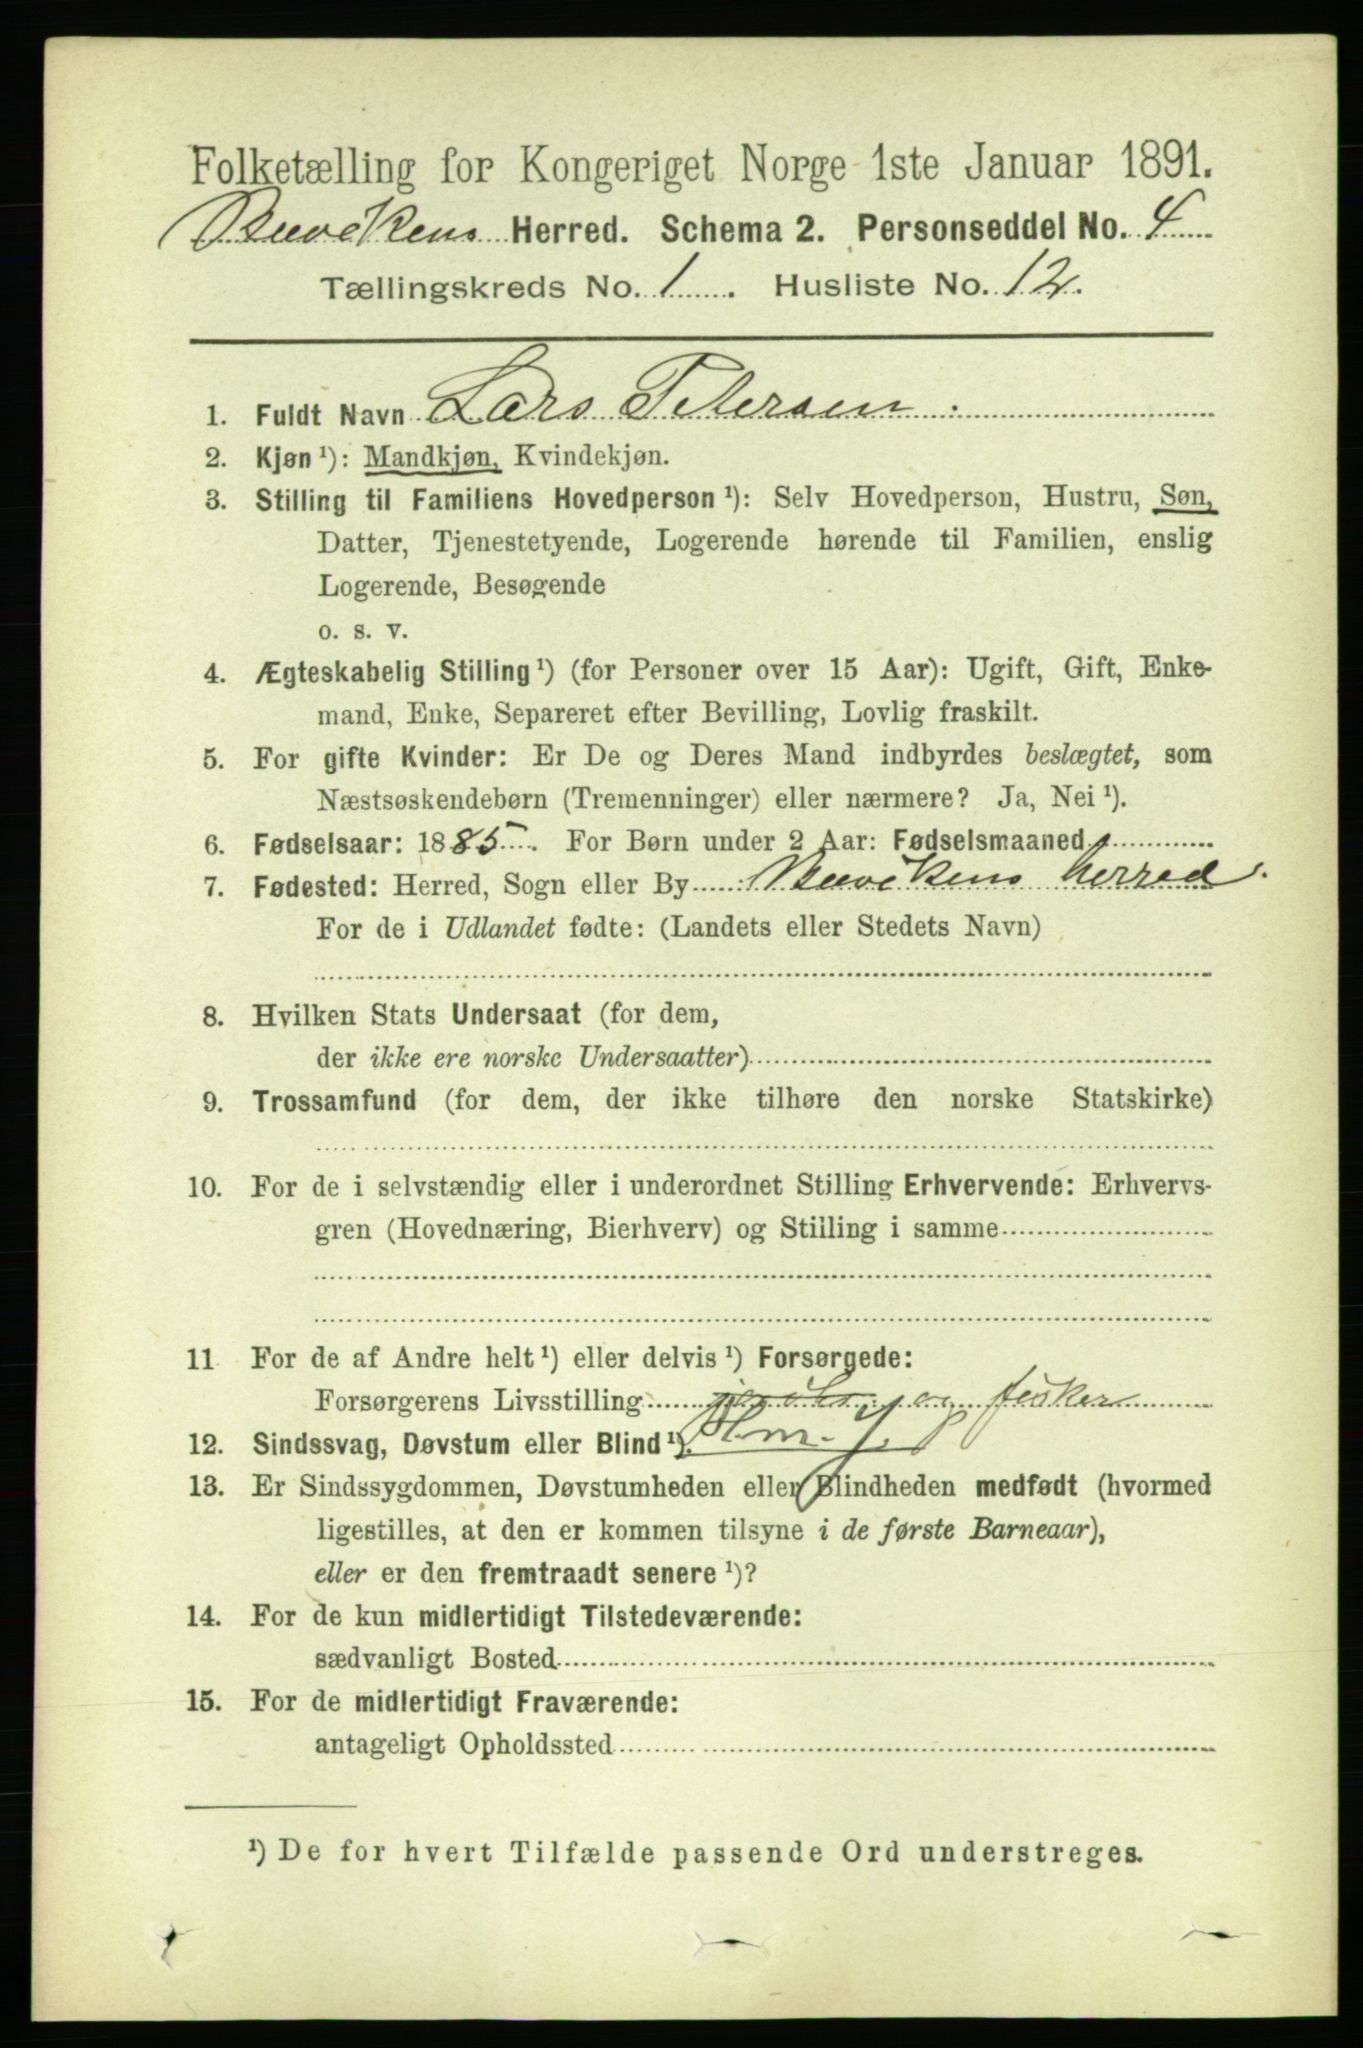 Folketælling for Kongeriget Norge 1ste Januar 1891.
Herred. Schema 2. Personseddel No. 4
Tællingskreds No. 1. Husliste No. 12.
1. Fuldt Navn Lars Petersen.
2. Kjøn ¹): Mandkjøn, Kvindekjøn.
3. Stilling til Familiens Hovedperson ¹): Selv Hovedperson, Hustru, Søn,
Datter, Tjenestetyende, Logerende hørende til Familien, enslig
Logerende, Besøgende
o. s. v.
4. Ægteskabelig Stilling ¹) (for Personer over 15 Aar): Ugift, Gift, Enke-
mand, Enke, Separeret efter Bevilling, Lovlig fraskilt.
5. For gifte Kvinder: Er De og Deres Mand indbyrdes beslægtet, som
Næstsøskendebørn (Tremenninger) eller nærmere? Ja, Nei ¹).
6. Fødselsaar: 1885. For Børn under 2 Aar: Fødselsmaaned
7. Fødested: Herred, Sogn eller By herred.
For de i Udlandet fødte: (Landets eller Stedets Navn)
8. Hvilken Stats Undersaat (for dem,
der ikke ere norske Undersaatter)
9. Trossamfund (for dem, der ikke tilhøre den norske Statskirke)
10. For de i selvstændig eller i underordnet Stilling Erhvervende: Erhvervs-
gren (Hovednæring, Bierhverv) og Stilling i samme
11 For de af Andre helt ¹) eller delvis ¹) Forsørgede:
Forsørgerens Livsstilling og fisker
12. Sindssvag, Døvstum eller Blind ¹).
13. Er Sindssygdommen, Døvstumheden eller Blindheden medfødt (hvormed
ligestilles, at den er kommen tilsyne i de første Barneaar),
eller er den fremtraadt senere ¹)?
14. For de kun midlertidigt Tilstedeværende:
sædvanligt Bosted
15. For de midlertidigt Fraværende:
antageligt Opholdssted
¹) De for hvert Tilfælde passende Ord understreges.